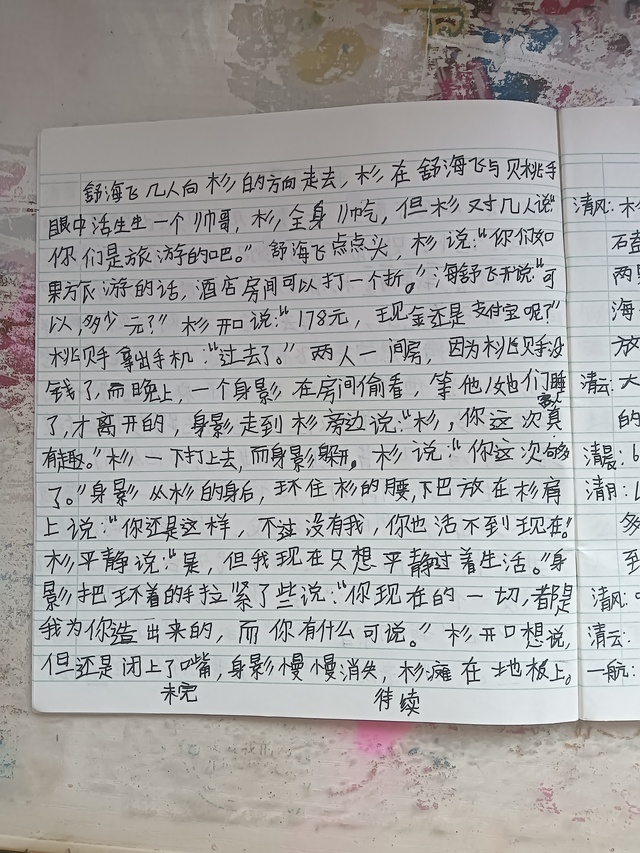 舒海飞几人向杉的方向走去，杉在舒海飞与贝桃手
眼中活生生一个帅哥，杉全身帅气，但杉对几人说“
你们是旅游的吧。”舒海飞点点头，杉说：“你们如
果方旅游的话，酒店房间可以打一个折。”海舒飞开说“可
以，多少元？”杉开口说：“178元，现金还是支付宝呢？”
桃贝手拿出手机：“过去了。”两人一间房，因为桃贝手没
钱了，而晚上，一个身影在房间偷看，等他/她们睡
熟
了，才离开的，身影走到杉旁边说：“杉，你这次真
有趣。”杉一下打上去，而身影躲开，杉说：“你这次够
了。”身影从杉的身后，环住杉的腰，下巴放在杉肩
上说：“你还是这样，不过没有我，你也活不到现在。”
杉平静说：“是，但我现在只想平静过着生活。”身
影把环着的手拉紧了些说：“你现在的一切，都是
我为你造出来的，而你有什么可说。”杉开口想说，
但还是闭上了嘴，身影慢慢消失，杉瘫在地板上。
未完 待续
清风：杉
石
两
海
放
清云：大
的
清晨：6
清月：
多
到
清风：
清云：
一航：